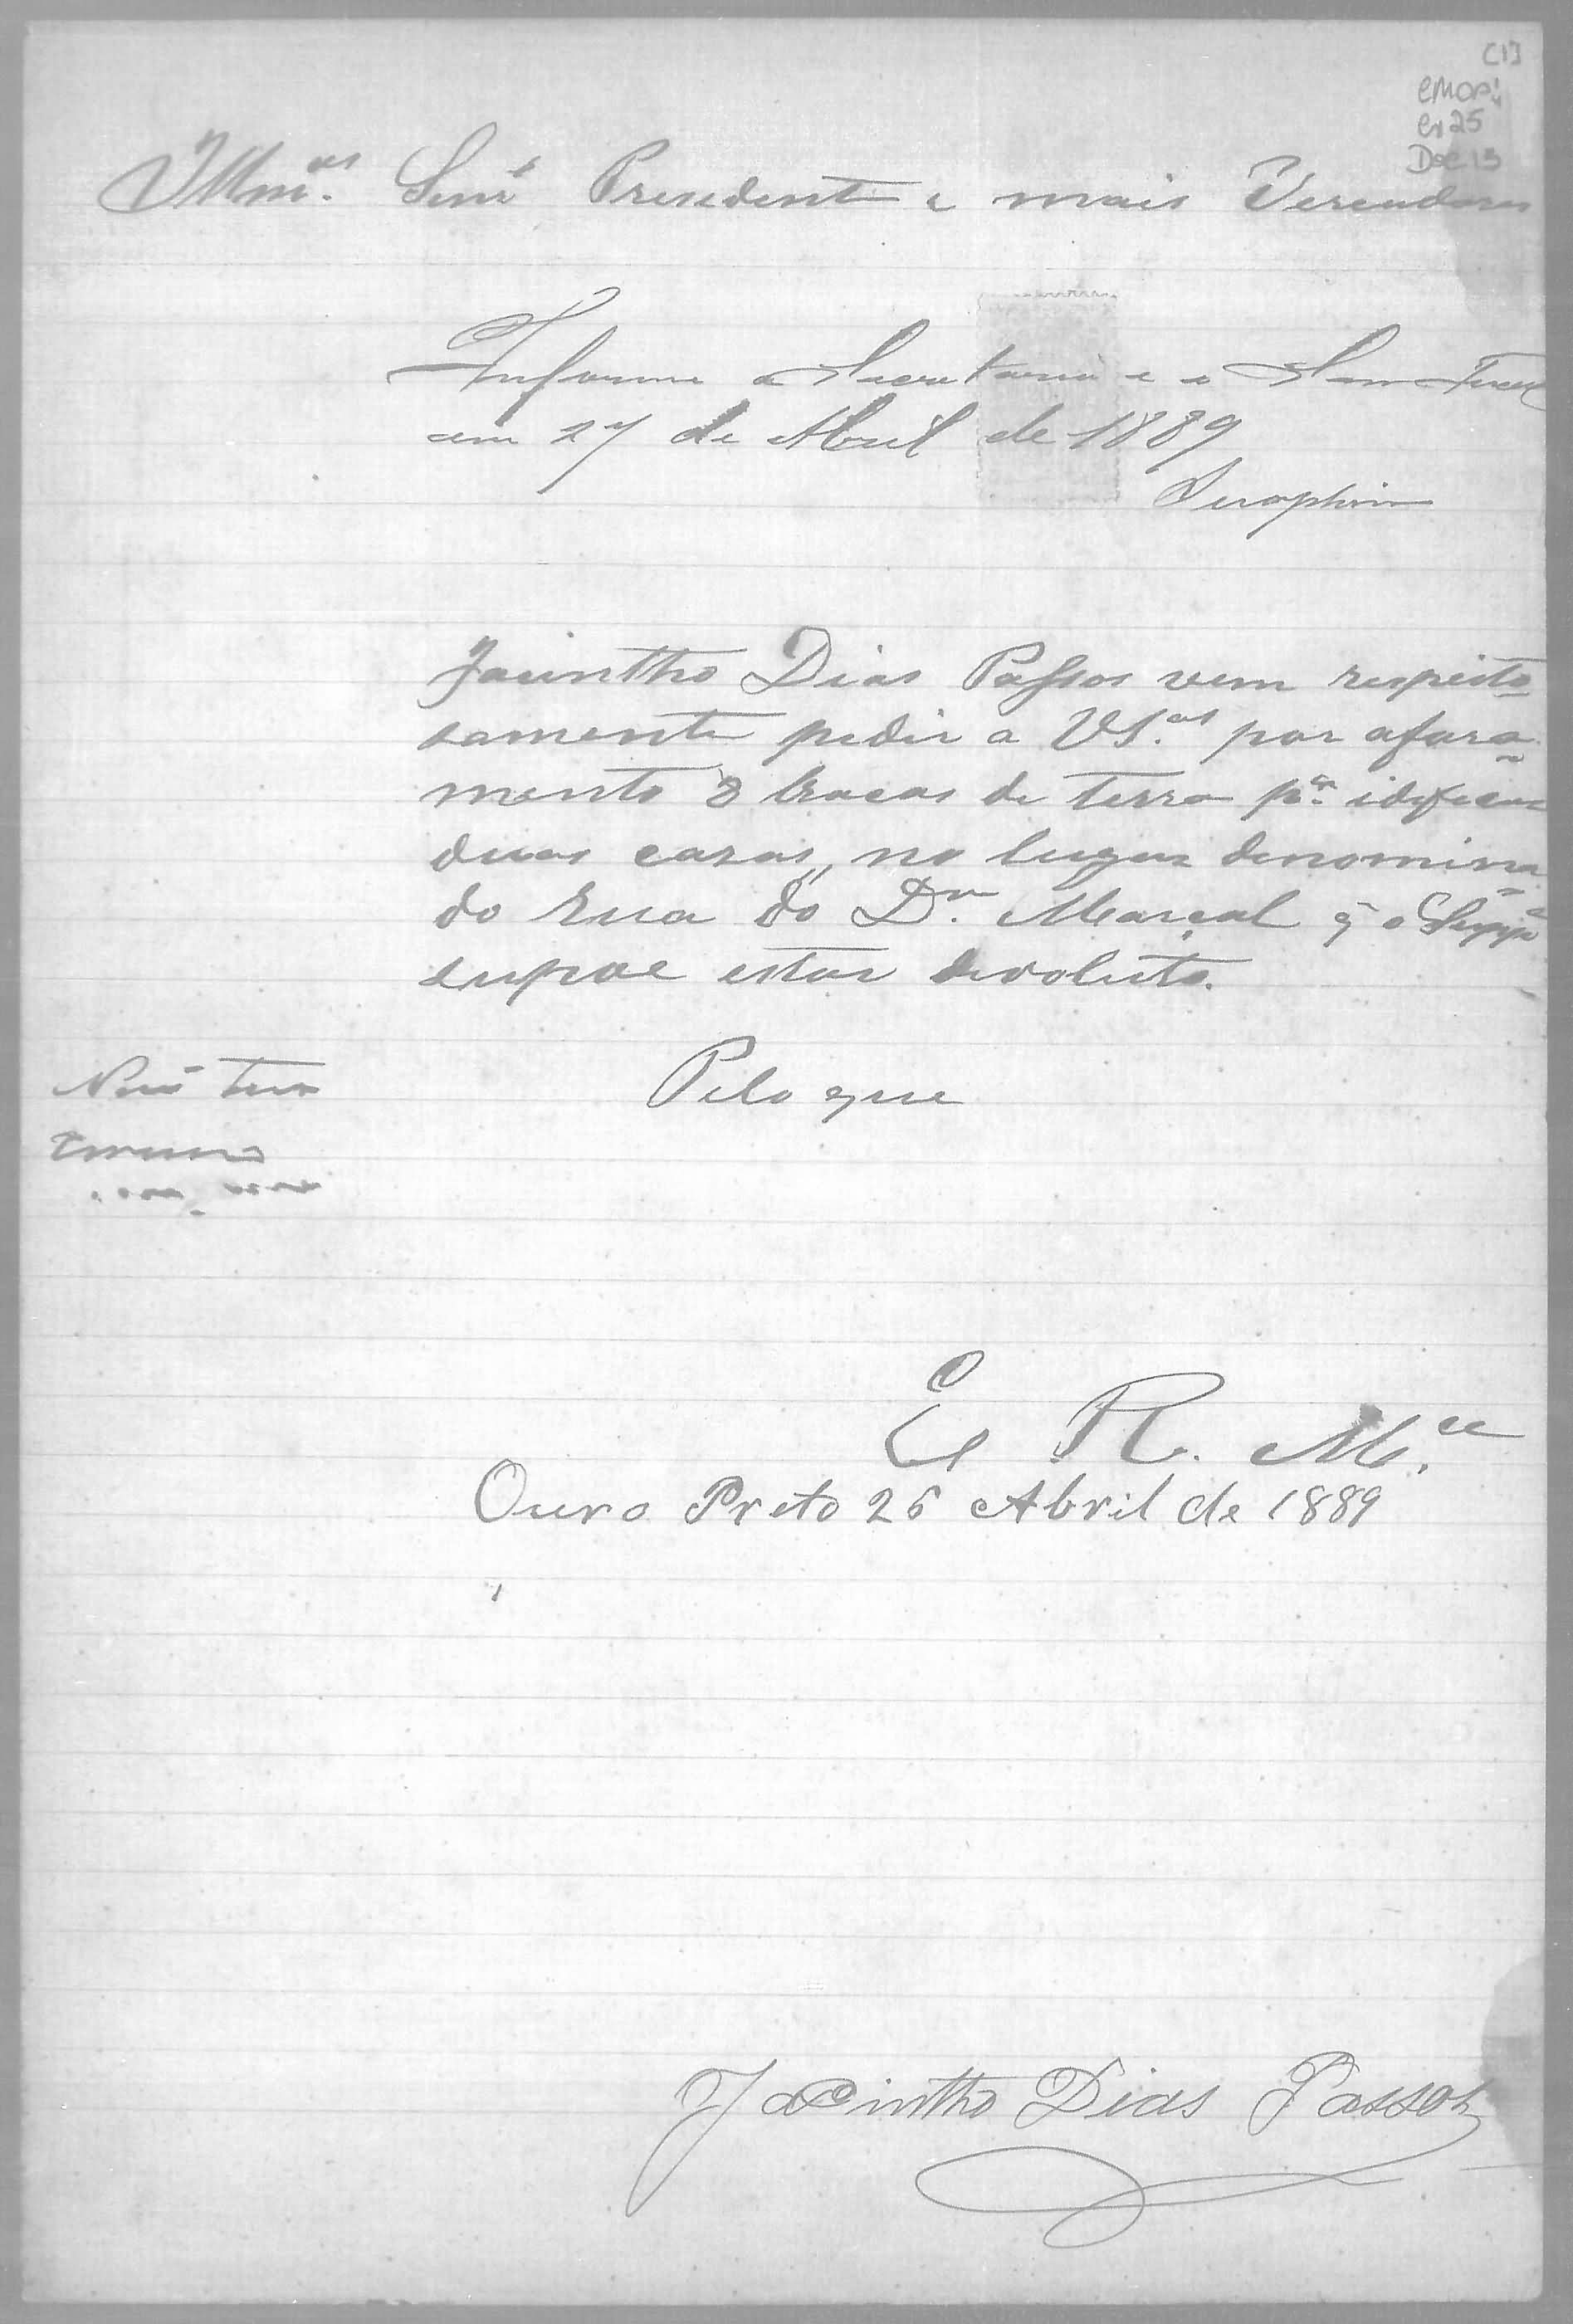 [1]
CMOP
Cx 25
Doc 13
Illm.os Senr.s Presidente e mais Vereadores
Informe a Secretaria e o Snr Fiscal
em 27 de Abril de 1889
Seraphim
Jacinttho Dias Passos vem respeito
samente pedir a VS.as por afora
mento 8 bracas de terra p.a idificar
duas casas, no lugar denomina
do Rua do D.r Marçal q̃ o Supp.e
supoe estar devoluto.
Pelo que
Não tem
terreno
E R. M.ce
Ouro Preto 26 Abril de 1889
Jacinttho Dias Passos